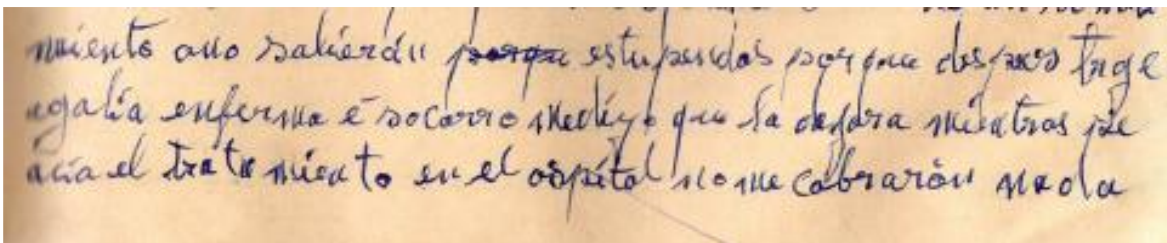 miento ano salierón porque estupendas porque despues trage
egalia enferma é socorro me dijo que la dejara mientras se
acia el tratamiento en el ospital no me cobrarón nada